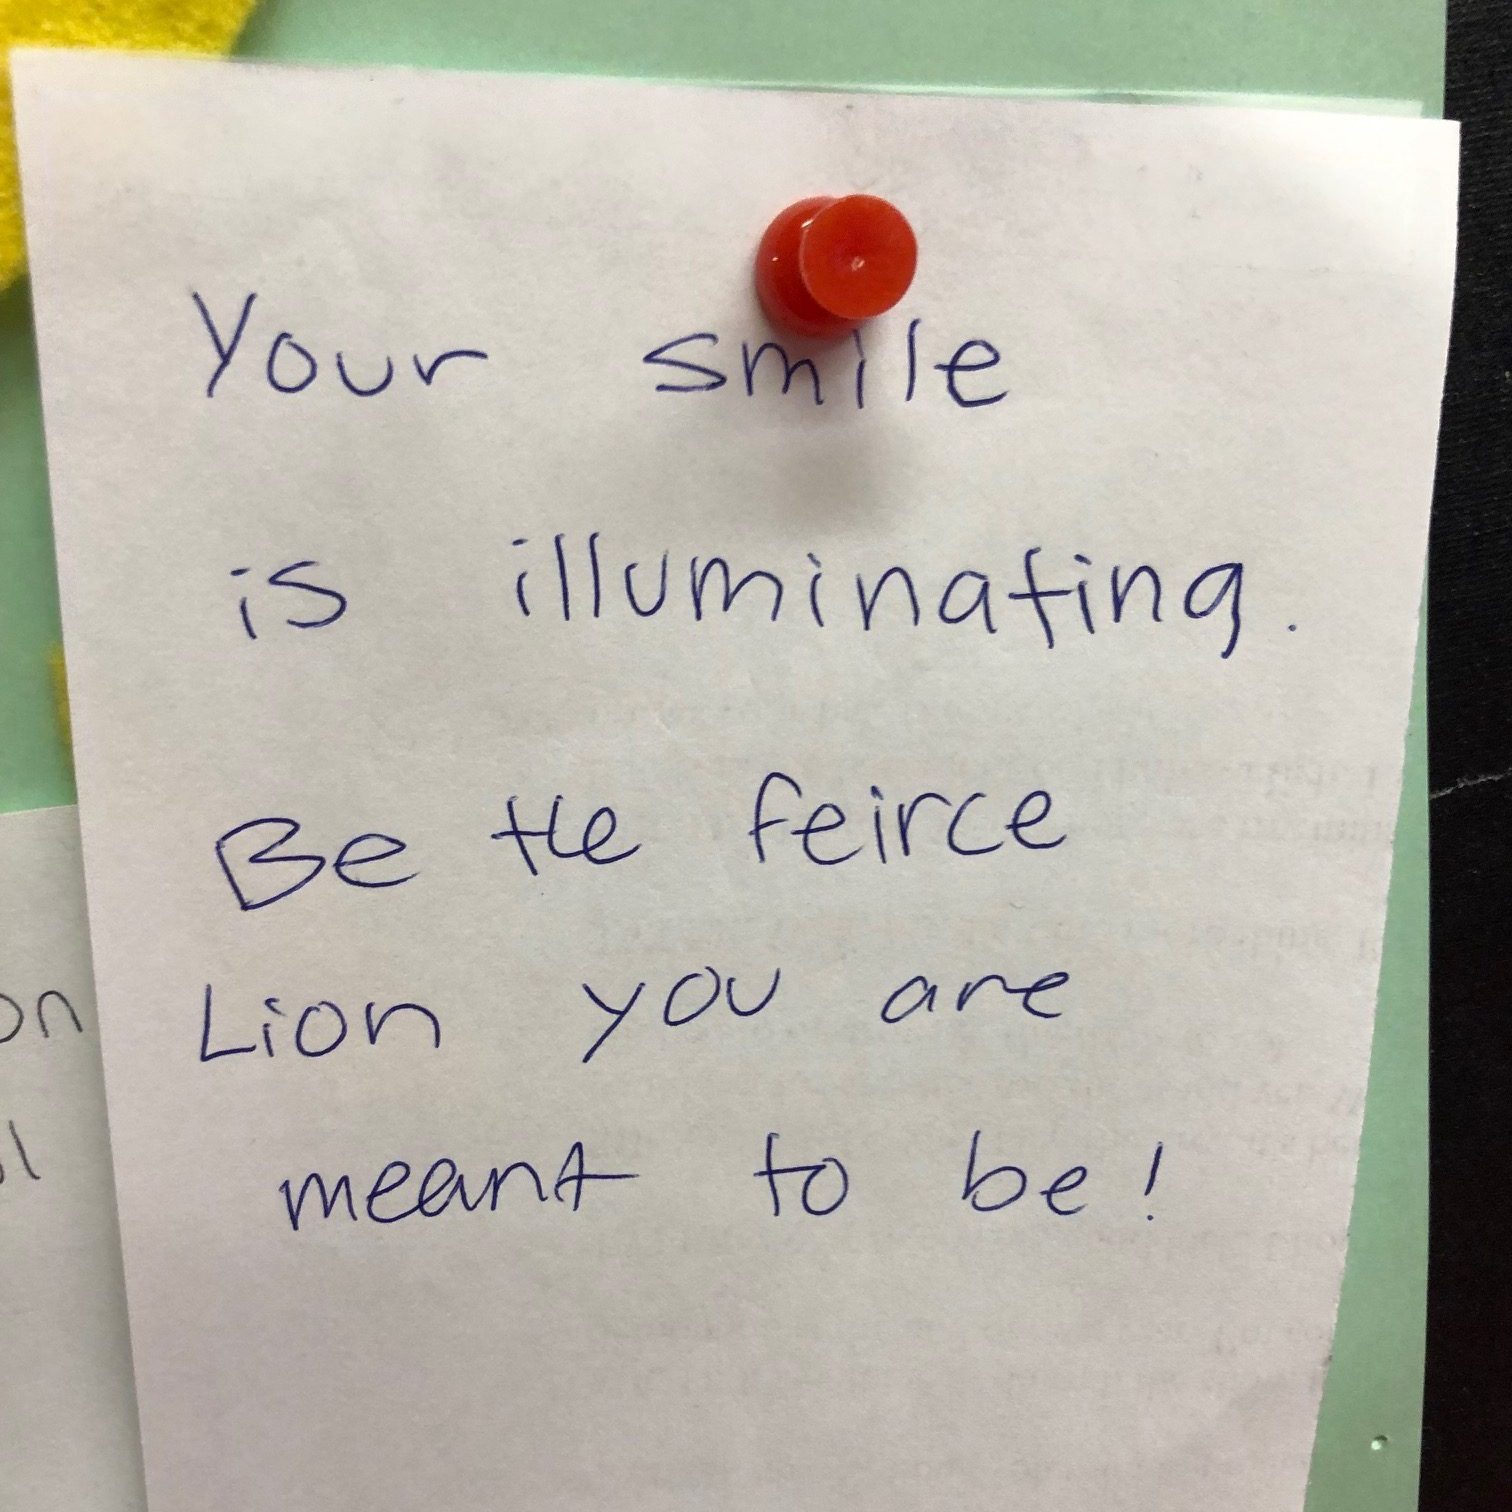 Your smile
is illuminating.
Be the feirce
Lion you are
meant to be!
on